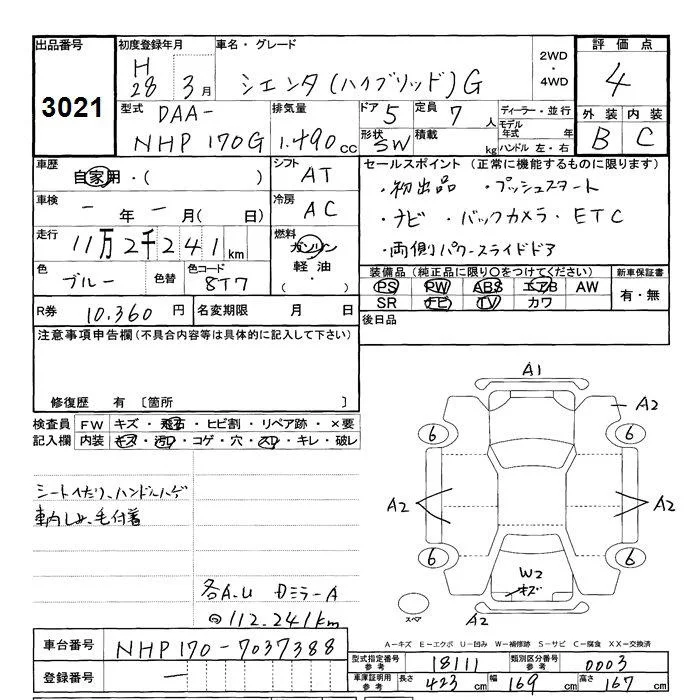 出品番号 初度登録年月 車名・グレード 2WD 評価点
3021 H28 3月 シエンタ(ハイブリッド)G ・4WD 4
型式 DAA- 排気量 ドア 5 定員 7人 ディーラー・並行 外装 内装
NHP170G 1.490cc 形状 SW 積載 kg モデル年式 年 B C
ハンドル 左・右
車歴 自家用・( ) シフト AT セールスポイント(正常に機能するものに限ります)
車検 ー年ー月( 日) 冷房 AC ・初出品 ・プッシュスタート
走行 11万2千241km 燃料 ガソリン ・ナビ ・バックカメラ ・ETC
軽油 ( ・ ) ・両側パワースライドドア
色 ブルー 色替 色コード 8T7 装備品(純正品に限り○をつけてください) 新車保証書
PS PW ABS エアB AW 有・無
SR ナビ TV カワ
R券 10.360円 名変期限 月 日 後日品
注意事項申告欄(不具合内容等は具体的に記入して下さい)
修復歴 有 〔箇所
検査員 FW キズ・飛石・ヒビ割・リペア跡・×要
記入欄 内装 キズ・汚レ・コゲ・穴・スレ・キレ・破レ
シートヘたり、ハンドルハゲ
車内しみ、毛付着
各A.U カミラーA
◎112.241km
A1
A2
6 6
A2 A2
6 6
W2
キズ
スペア A2
A-キズ E-エクボ U-凹み W-補修跡 S-サビ C-腐食 XX-交換済
車台番号 NHP170-7037388
型式指定番号 参考 18111 類別区分番号 参考 0003
登録番号 ー 車庫証明用 参考 長さ 423cm 幅 169cm 高さ 167cm